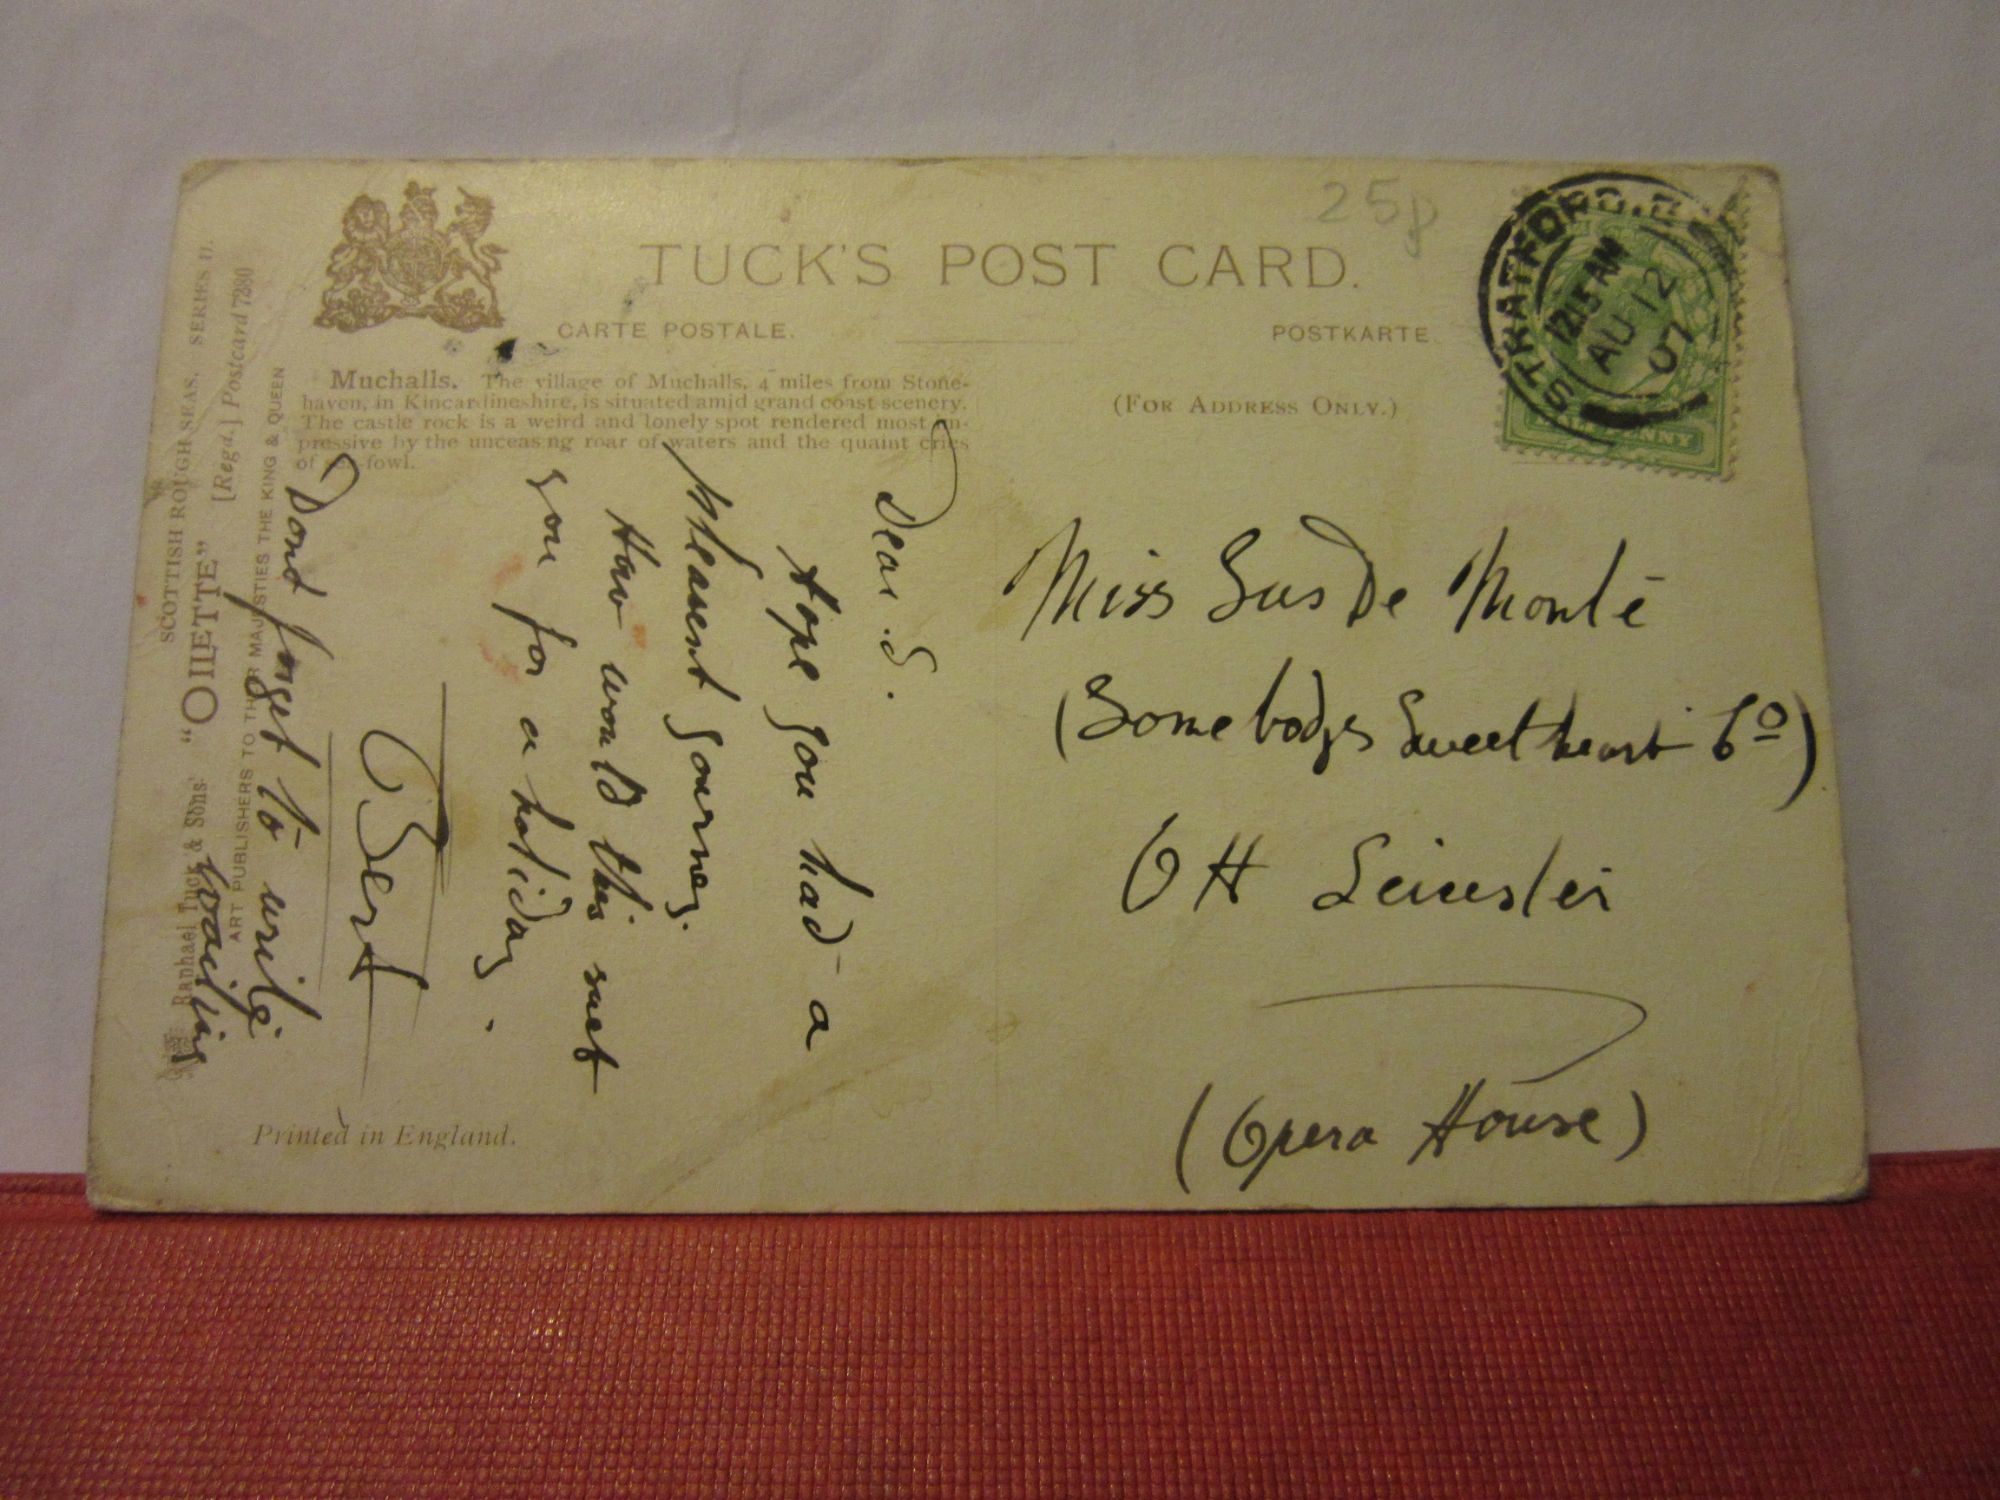 25p
TUCK'S POST CARD.
CARTE POSTALE.
POSTKARTE
(FOR ADDRESS ONLY.)
Muchalls. The village of Muchalls, 4 miles from Stone-
haven, in Kincardineshire, is situated amid grand coast scenery.
The castle rock is a weird and lonely spot rendered most im-
pressive by the unceasing roar of waters and the quaint cries
of sea-fowl.
SCOTTISH ROUGH SEAS, SERIES II.
"OILETTE" [Regd.] Postcard 7280
Raphael Tuck & Sons'
ART PUBLISHERS TO THEIR MAJESTIES THE KING & QUEEN
Printed in England.
STRATFORD. E
1215 AM
AU 12
07
HALFPENNY
Dear S.
Hope you had a
pleasent journey
How would this suet
you for a holiday.
Bert
Dont forget to write
Miss Sus De Monte
(Somebodys Sweetheart Co)
OH Leicester
(Opera House)